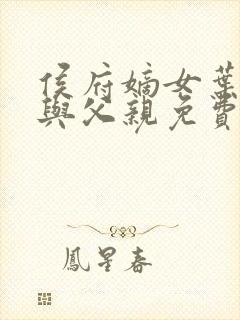 侯府嫡女葉
與父親免費
鳳星春